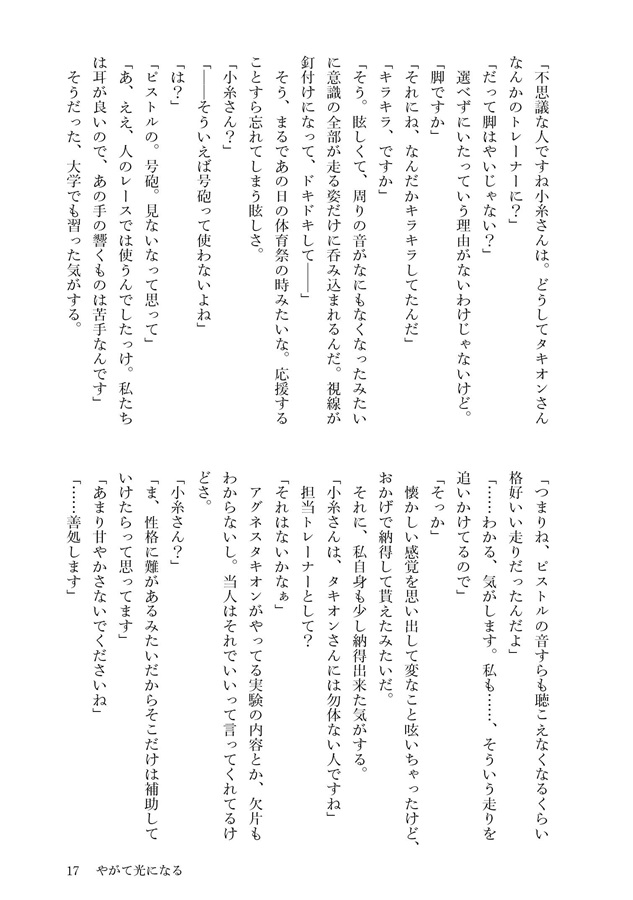 「不思議な人ですね小糸さんは。どうしてタキオンさん
なんかのトレーナーに？」
「だって脚はやいじゃない？」
　選べずにいたっていう理由がないわけじゃないけど。
「脚ですか」
「それにね、なんだかキラキラしてたんだ」
「キラキラ、ですか」
「そう。眩しくて、周りの音がなにもなくなったみたい
に意識の全部が走る姿だけに呑み込まれるんだ。視線が
釘付けになって、ドキドキして――」
　そう、まるであの日の体育祭の時みたいな。応援する
ことすら忘れてしまう眩しさ。
「小糸さん？」
「――そういえば号砲って使わないよね」
「は？」
「ピストルの。号砲。見ないなって思って」
「あ、ええ、人のレースでは使うんでしたっけ。私たち
は耳が良いので、あの手の響くものは苦手なんです」
　そうだった、大学でも習った気がする。
「つまりね、ピストルの音すらも聴こえなくなるくらい
格好いい走りだったんだよ」
「……わかる、気がします。私も……、そういう走りを
追いかけてるので」
「そっか」
　懐かしい感覚を思い出して変なこと呟いちゃったけど、
おかげで納得して貰えたみたいだ。
　それに、私自身も少し納得出来た気がする。
「小糸さんは、タキオンさんには勿体ない人ですね」
　担当トレーナーとして？
「それはないかなぁ」
　アグネスタキオンがやってる実験の内容とか、欠片も
わからないし。当人はそれでいいって言ってくれてるけ
どさ。
「小糸さん？」
「ま、性格に難があるみたいだからそこだけは補助して
いけたらって思ってます」
「あまり甘やかさないでくださいね」
「……善処します」
17　やがて光になる